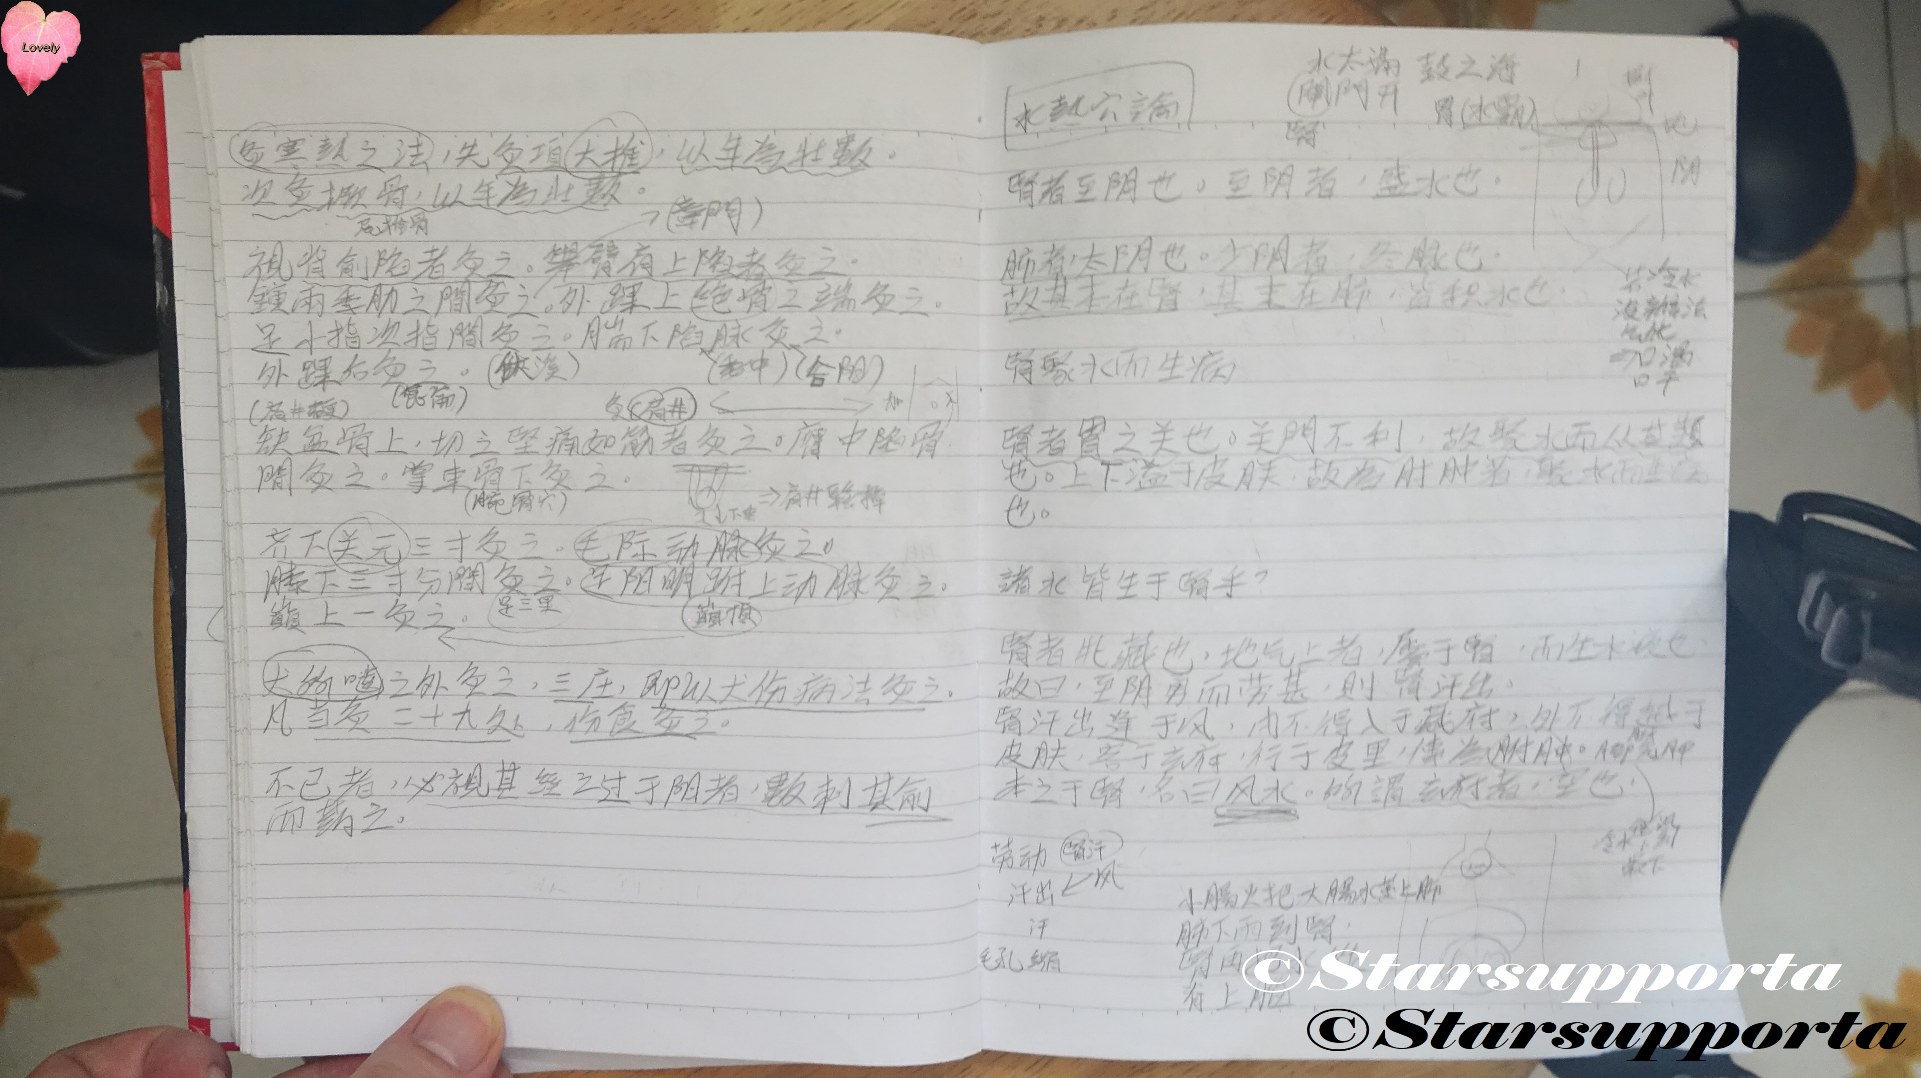 Lovely
灸寒热之法，先灸項大推，以年為壮數。
次灸撅骨，以年為壮數。
尾椎骨
(章門)
視背俞陷者灸之。舉臂肩上陷者灸之。
兩季肋之間灸之。外踝上绝骨之端灸之。
足小指次指間灸之。腨下陷脉灸之。
外踝后灸之。
(合阳)
(肩井穴)
灸(肩井)
缺盆骨上，切之坚痛如筋者灸之。膺中陷骨
間灸之。掌束骨下灸之。
(腕骨穴)
齐下关元三寸灸之。毛际动脉灸之。
膝下三寸分間灸之。足阳明跗上动脉灸之。
巅上一灸之。
足三里
巅頂
犬所嚙之处灸之，三壮，即以犬伤病法灸之。
凡当灸二十九处，伤食灸之。
不已者，必視其经之过于阴者，數刺其俞
而藥之。
水熱穴論
水太滿
閘門开
腎
胃(水壩)
地
阴
腎者至阴也。至阴者，盛水也。
肺者，太阴也。少阴者，冬脉也。
故其本在腎，其末在肺，皆积水也。
腎聚水而生病
口渴
口干
腎者胃之关也。关門不利，故聚水而从其類
也。上下溢于皮肤，故為胕肿者，聚水而生病
也。
諸水皆生于腎乎？
腎者牝藏也，地气上者，属于腎，而生水液也
故曰，至阴勇而劳甚，則腎汗出。
腎汗出逢于风，内不得入于藏府，外不得越于
皮肤，客于玄府，行于皮里，傳為胕肿。
本之于腎，名曰风水。所謂玄府者，空也。
劳动 腎汗
汗出 风
汗
毛孔縮
小腸火把大腸水蒸上肺
肺下雨到腎，
有上
©Starsupporta
©Starsupporta